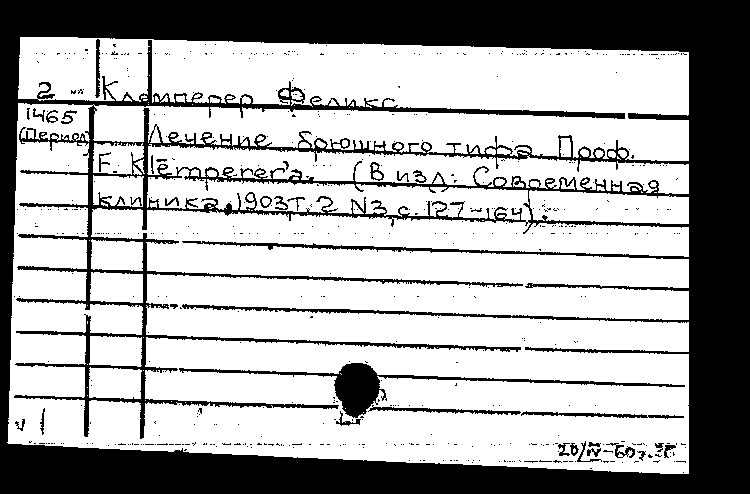 2 Клемперер, Феликс
1465
(Период)
Лечение брюшного тифа. Проф.
F. Klemperer'a. (В изд: Современная
клиника, 1903 т. 2 N3, с. 127-164).
20/IV-60г.